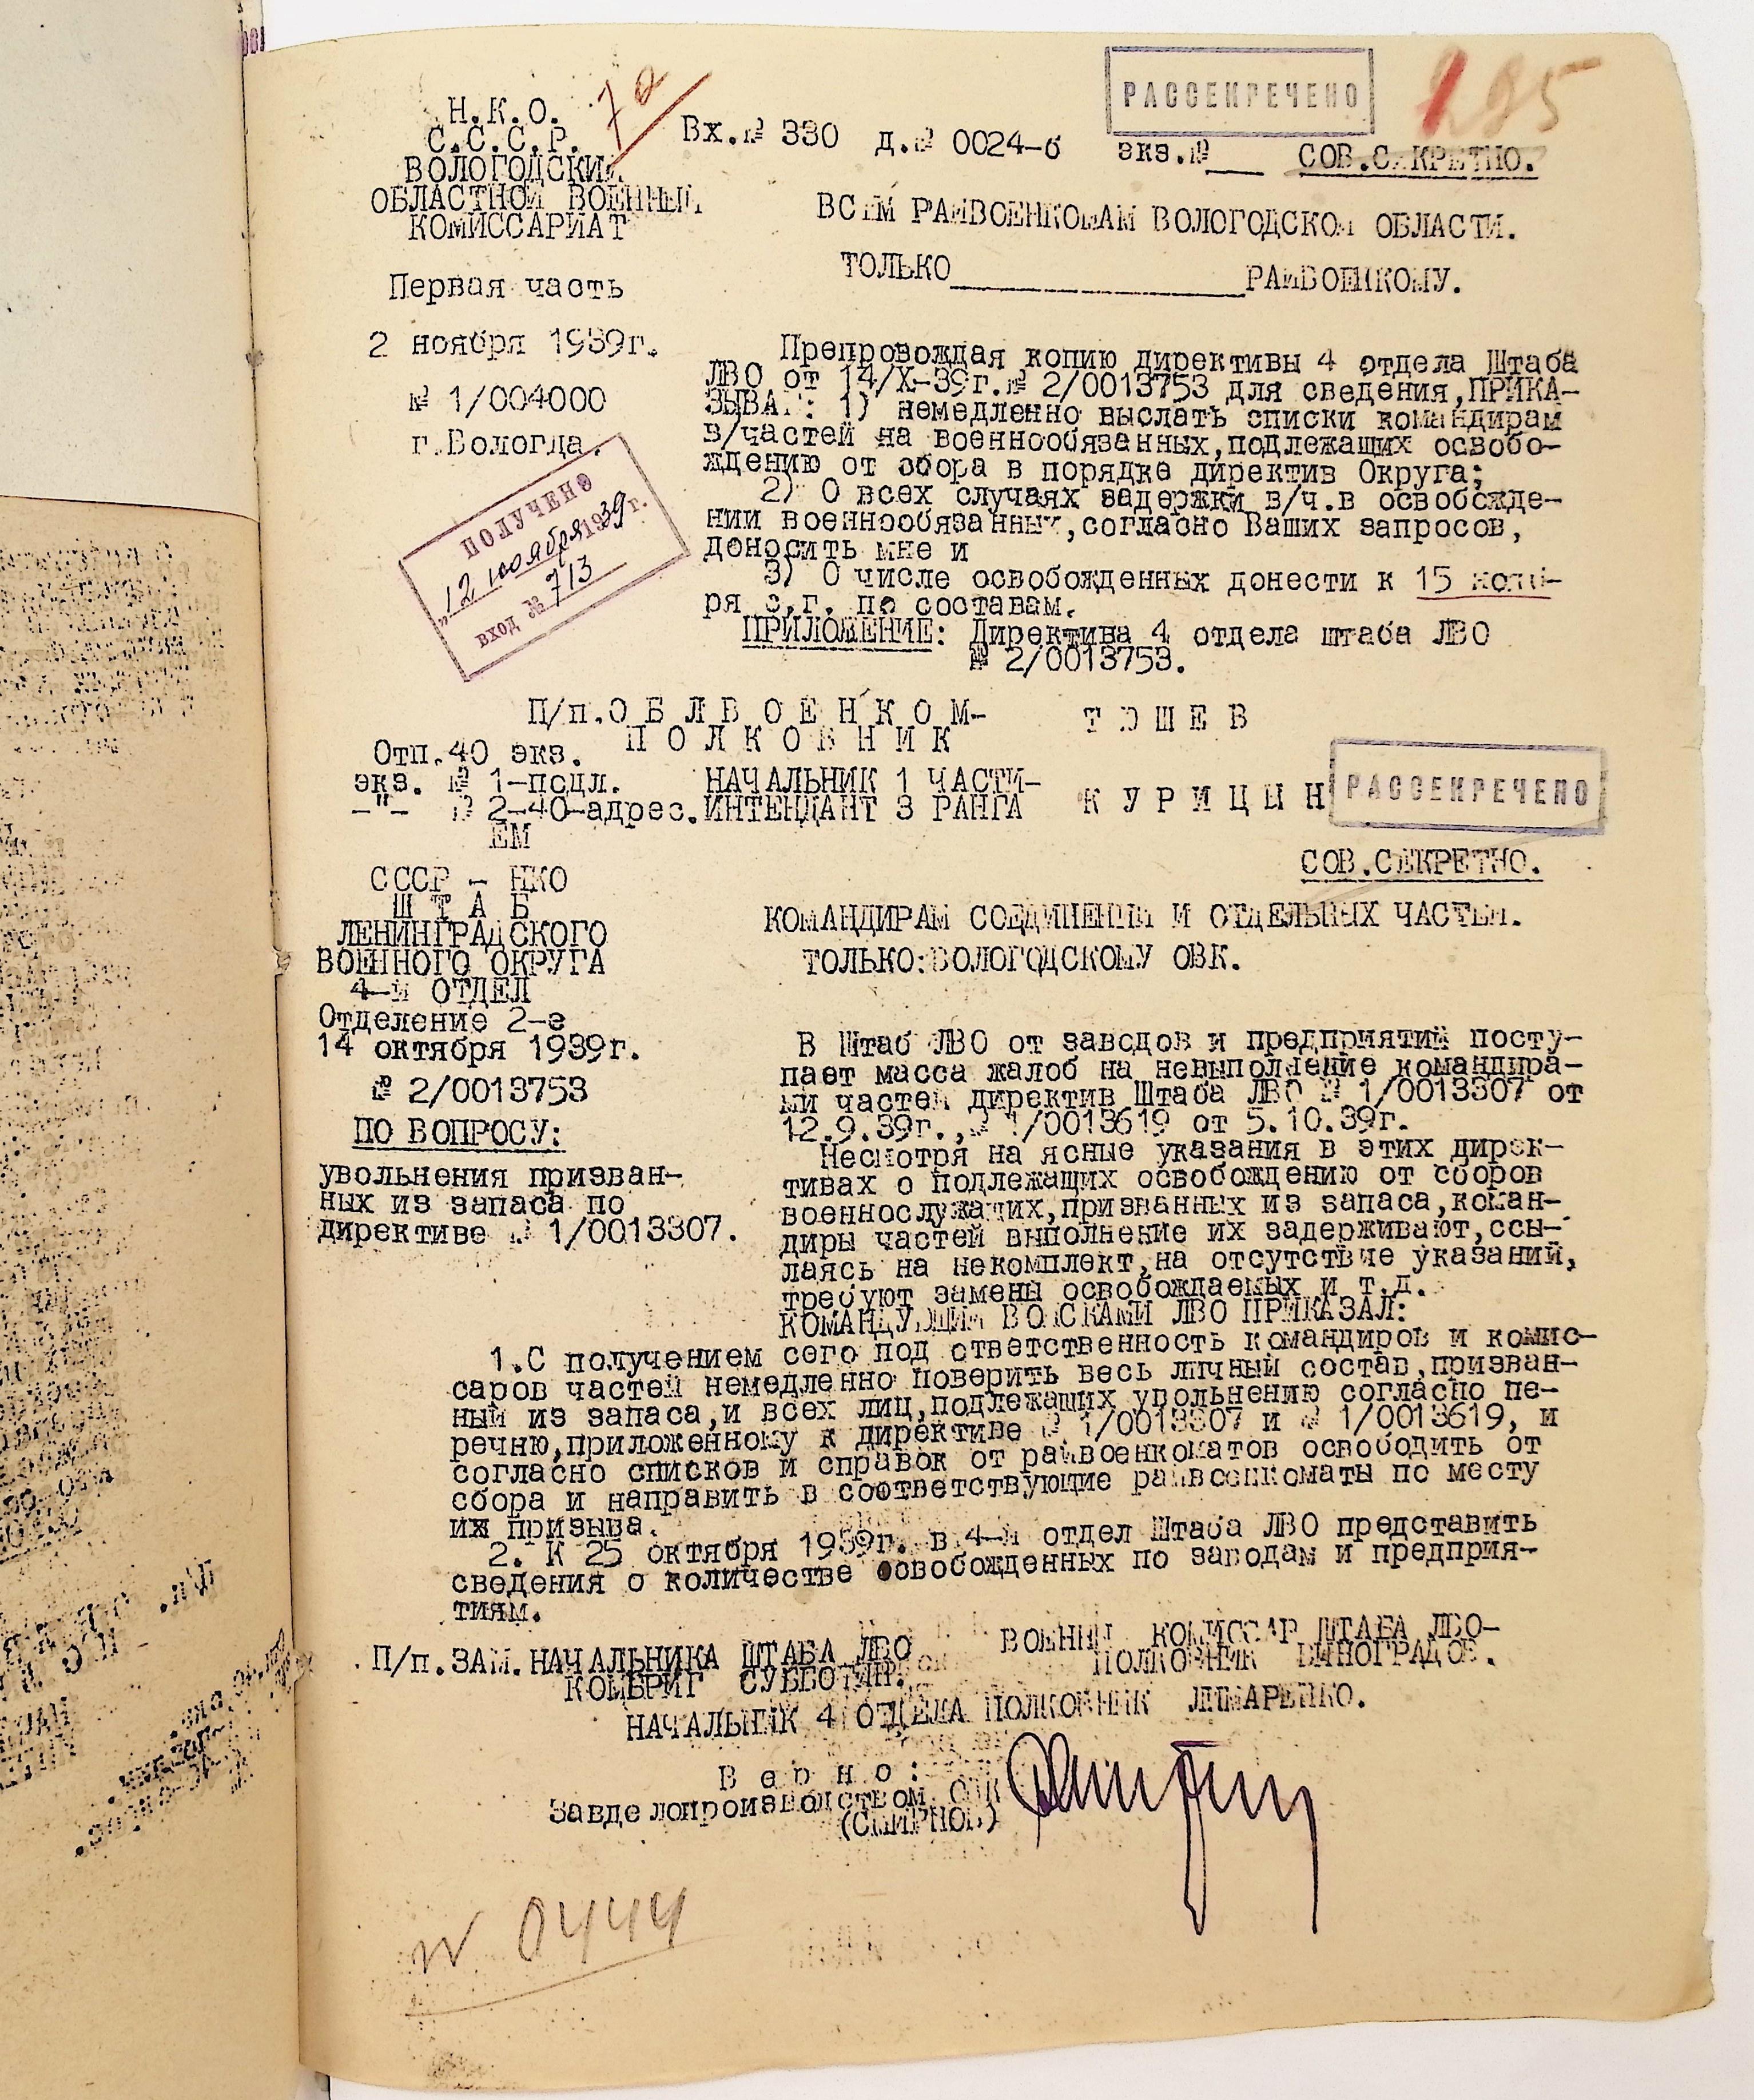 РАССЕКРЕЧЕНО
7а
Н.К.О.
С.С.С.Р.
ВОЛОГОДСКИЙ
ОБЛАСТНОЙ ВОЕННЫЙ
КОМИССАРИАТ
Вх.№ 330 д.№ 0024-б экз.№___ СОВ.СЕКРЕТНО.
ВСЕМ РАЙВОЕНКОМАМ ВОЛОГОДСКОЙ ОБЛАСТИ.
ТОЛЬКО_______________РАЙВОЕНКОМУ.
Первая часть
2 ноября 1939г.
№ 1/004000
г.Вологда.
ПОЛУЧЕНО
"12 ноября 1939 г.
ВХОД № 713
Препровождая копию директивы 4 отдела Штаба
ЛВО от 14/X-39г.№ 2/0013753 для сведения,ПРИКА-
ЗЫВАЮ: 1) немедленно выслать списки командирам
в/частей на военнообязанных,подлежащих освобо-
ждению от сбора в порядке директив Округа;
2) О всех случаях задержки в/ч.в освобожде-
нии военнообязанных,согласно Ваших запросов,
доносить мне и
3) О числе освобожденных донести к 15 нояб-
ря с.г. по составам.
ПРИЛОЖЕНИЕ: Директива 4 отдела штаба ЛВО
№ 2/0013753.
П/п.ОБЛВОЕНКОМ- ТОШЕВ
ПОЛКОВНИК
Отп.40 экз.
экз. № 1-подл. НАЧАЛЬНИК 1 ЧАСТИ-
-"- № 2-40-адрес. ИНТЕНДАНТ 3 РАНГА КУРИЦЫН
ЕМ
РАССЕКРЕЧЕНО
СОВ.СЕКРЕТНО.
СССР - НКО
ШТАБ
ЛЕНИНГРАДСКОГО
ВОЕННОГО ОКРУГА
4-й ОТДЕЛ
Отделение 2-е
14 октября 1939г.
№ 2/0013753
ПО ВОПРОСУ:
увольнения призван-
ных из запаса по
директиве № 1/0013307.
КОМАНДИРАМ СОЕДИНЕНИЙ И ОТДЕЛЬНЫХ ЧАСТЕЙ.
ТОЛЬКО:ВОЛОГОДСКОМУ ОВК.
В Штаб ЛВО от заводов и предприятий посту-
пает масса жалоб на невыполнение командира-
ми частей директив Штаба ЛВО № 1/0013307 от
12.9.39г.,№ 1/0013619 от 5.10.39г.
Несмотря на ясные указания в этих дирек-
тивах о подлежащих освобождению от сборов
военнослужащих,призванных из запаса,коман-
диры частей выполнение их задерживают,ссы-
лаясь на некомплект,на отсутствие указаний,
требуют замены освобождаемых и т.д.
КОМАНДУЮЩИЙ ВОЙСКАМИ ЛВО ПРИКАЗАЛ:
1.С получением сего под ответственность командиров и комис-
саров частей немедленно поверить весь личный состав,призван-
ный из запаса,и всех лиц,подлежащих увольнению согласно пе-
речню,приложенному к директиве № 1/0013307 и № 1/0013619, и
согласно списков и справок от райвоенкоматов освободить от
сбора и направить в соответствующие райвоенкоматы по месту
их призыва.
2. К 25 октября 1939г. в 4-й отдел Штаба ЛВО представить
сведения о количестве освобожденных по заводам и предприя-
тиям.
П/п.ЗАМ.НАЧАЛЬНИКА ШТАБА ЛВО
КОМБРИГ СУББОТИН.
ВОЕННЫЙ КОМИССАР ШТАБА ЛВО-
ПОЛКОВНИК ВИНОГРАДОВ.
НАЧАЛЬНИК 4 ОТДЕЛА ПОЛКОВНИК ЛИМАРЕНКО.
Верно:
Завделопроизводством ОВК
(СМИРНОВ)
№ 0444